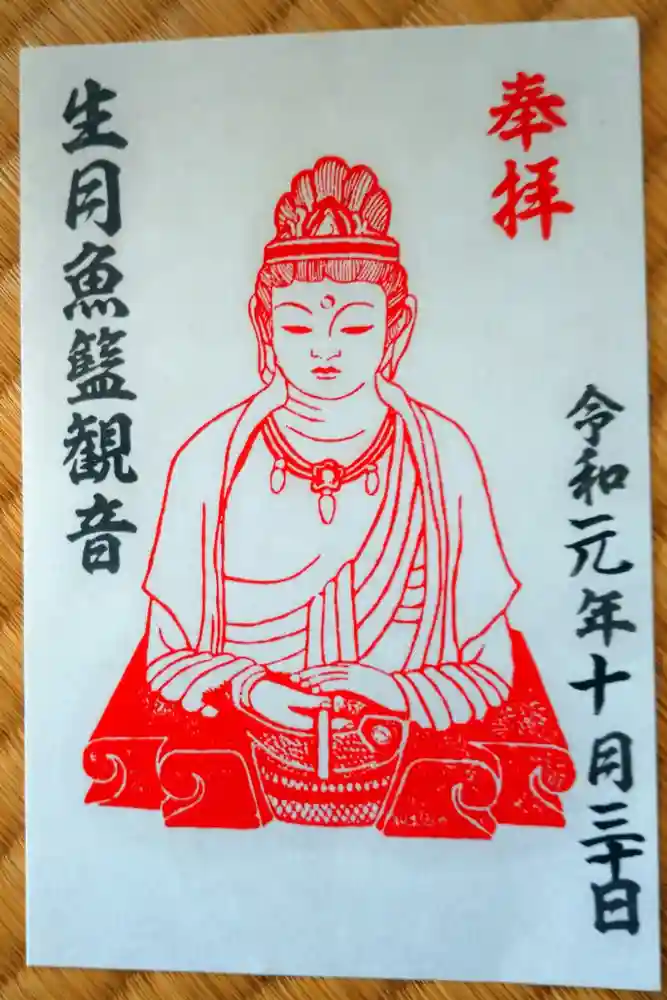 奉拝
令和元年十月三十日
生月魚籃観音